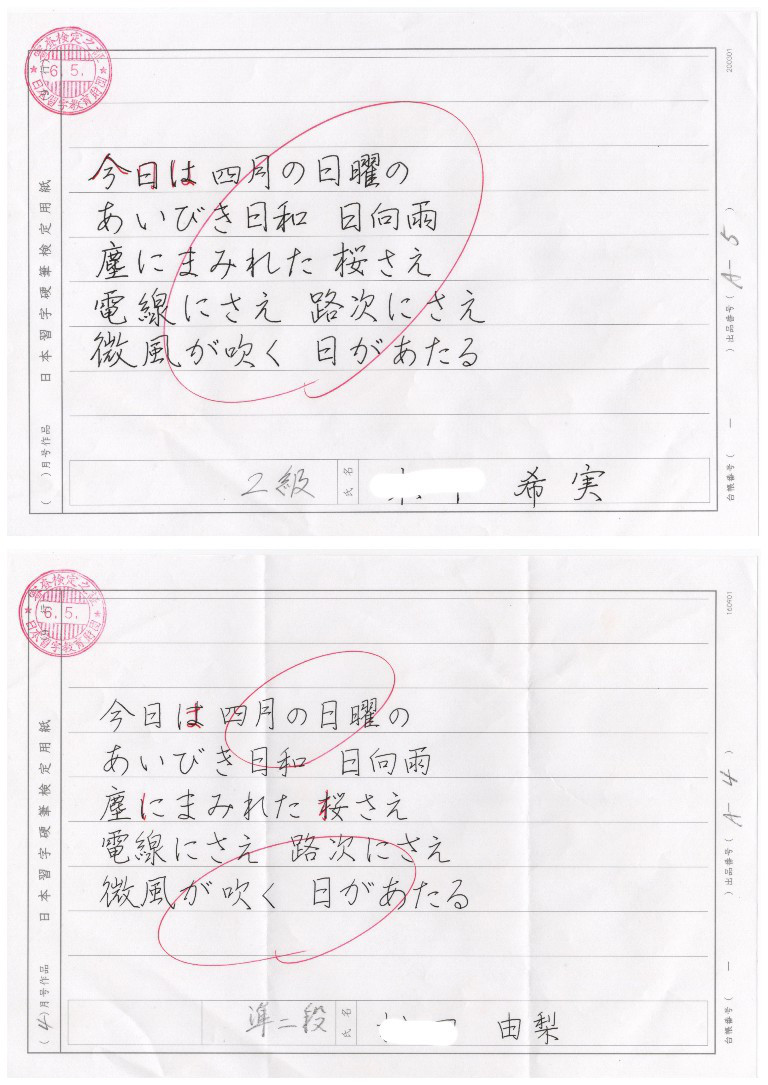 6.5.
日本習字教育財団
200301
今日は 四月の日曜の
あいびき日和 日向雨
塵にまみれた 桜さえ
電線にさえ 路次にさえ
微風が吹く 日があたる
日本習字硬筆検定用紙
( )月号作品
2級
氏名
希実
)出品番号( A-5 )
台帳番号( ー
6.5.
日本習字教育財団
160901
今日は 四月の日曜の
あいびき日和 日向雨
塵にまみれた 桜さえ
電線にさえ 路次にさえ
微風が吹く 日があたる
日本習字硬筆検定用紙
(4)月号作品
準二段
氏名
由梨
)出品番号( A-4 )
台帳番号( ー